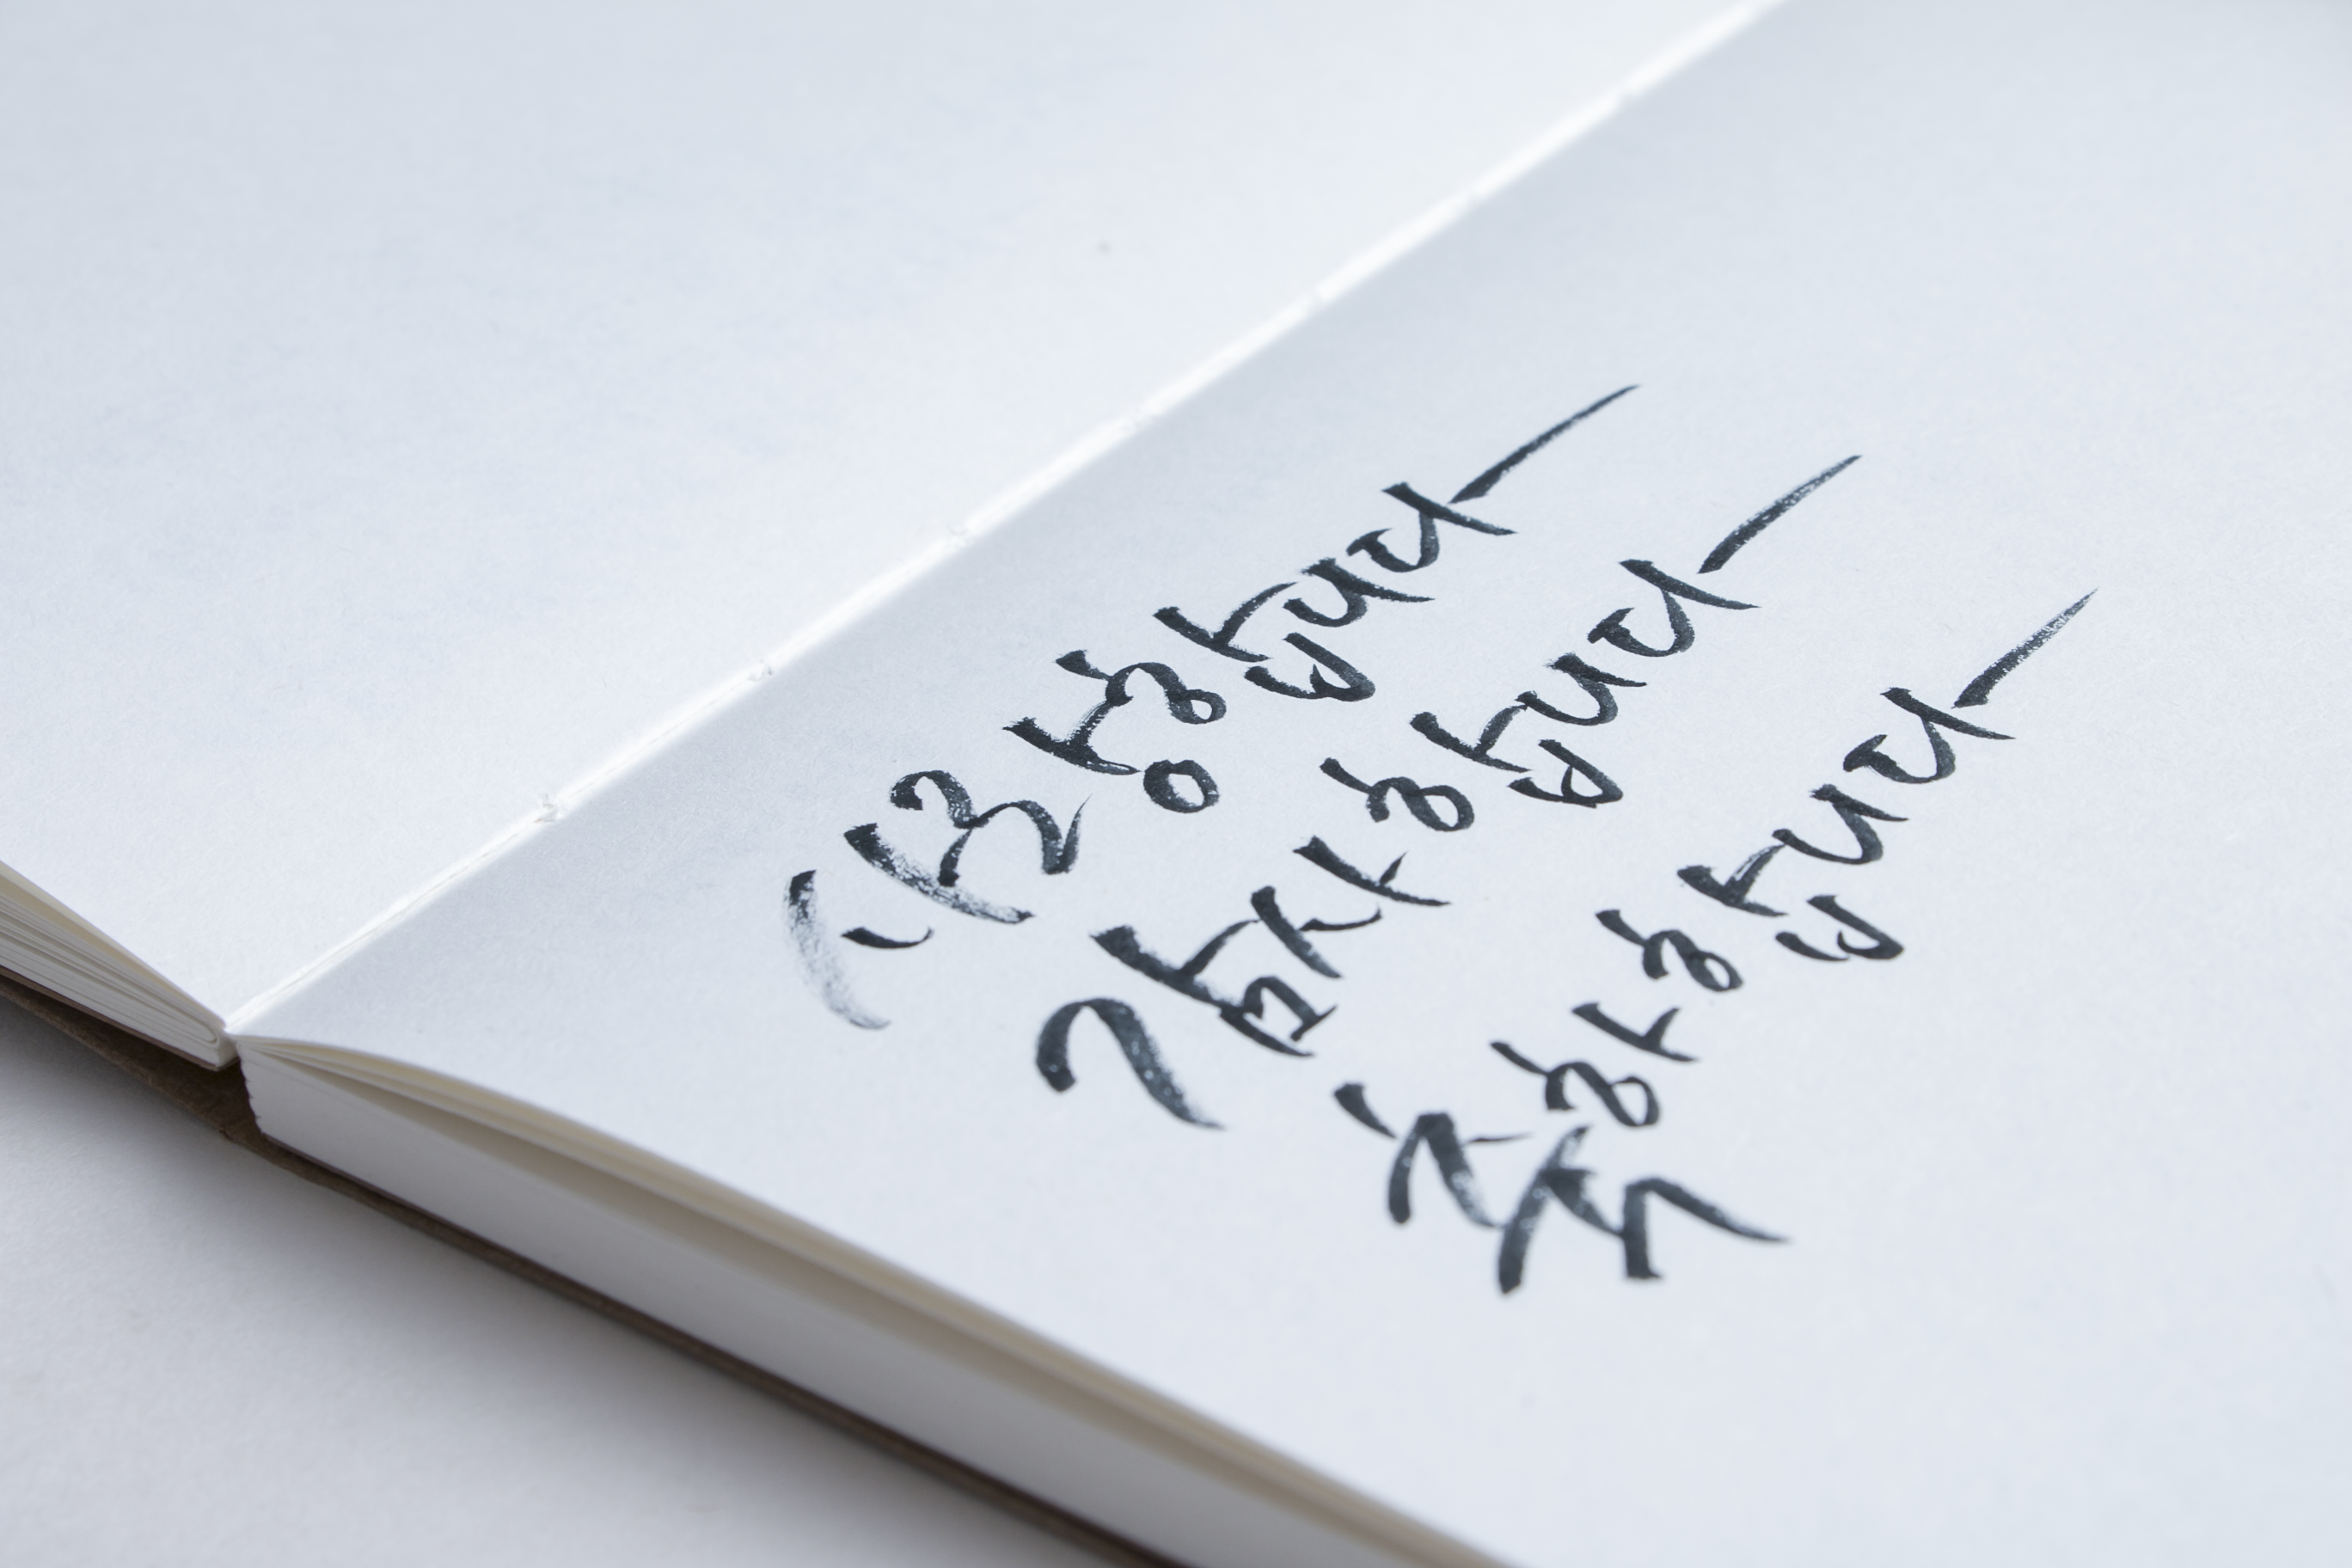 사랑합니다
감사합니다
축하합니다